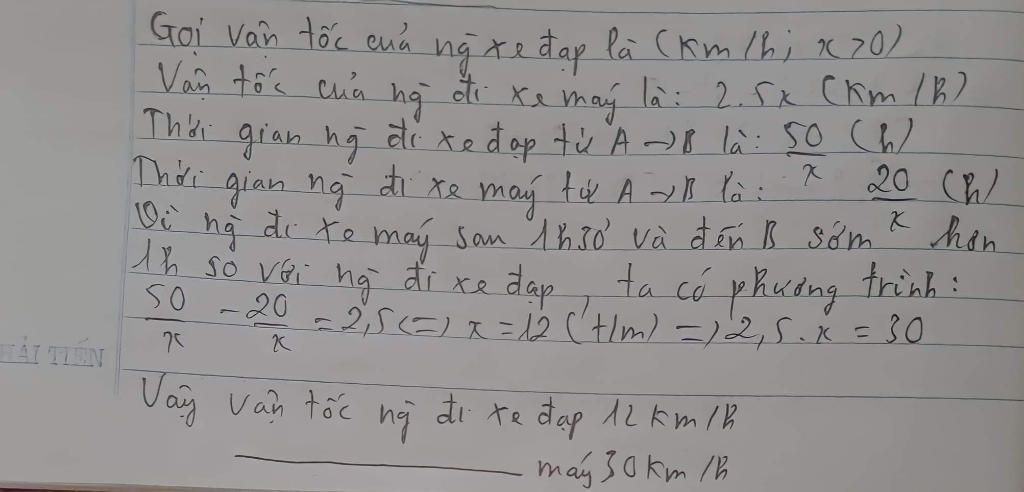 Gọi vận tốc của ng̅ xe đạp là (km/h; x>0)
Vận tốc của ng̅ đi xe máy là: 2.5x (km/h)
Thời gian ng̅ đi xe đạp từ A→B là: 50/x (h)
Thời gian ng̅ đi xe máy từ A→B là: 20/x (h)
Vì ng̅ đi xe máy sau 1h30' và đến B sớm hơn
1h so với ng̅ đi xe đạp, ta có phương trình:
50/x - 20/x = 2,5 <=> x = 12 (t/m) => 2,5.x = 30
HẢI TIẾN
Vậy vận tốc ng̅ đi xe đạp 12km/h
máy 30km/h